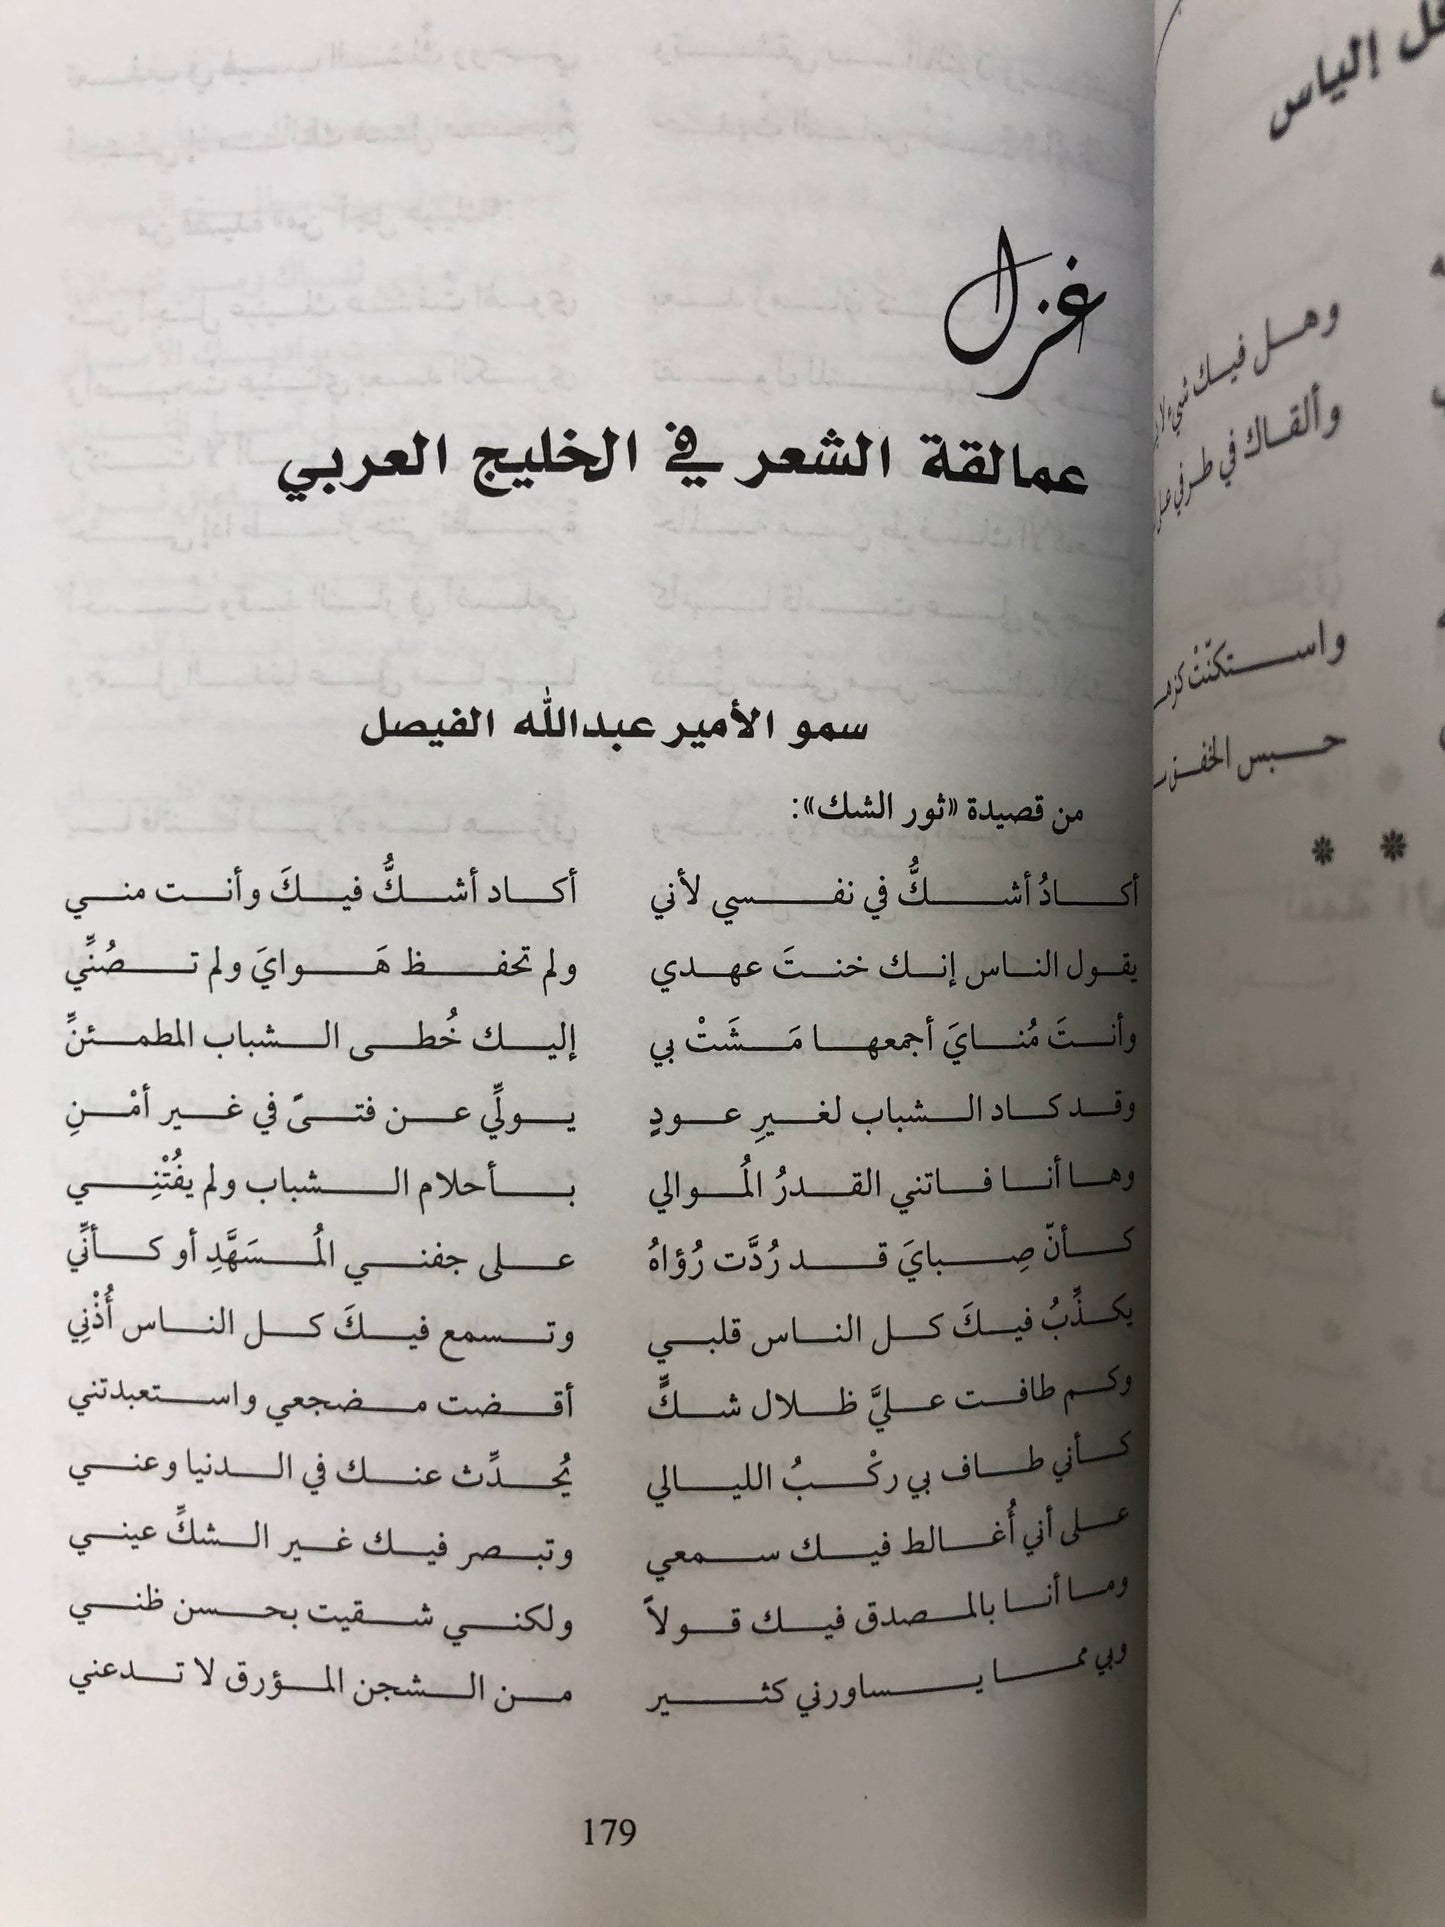 غزل
عمالقة الشعر في الخليج العربي
سمو الأمير عبدالله الفيصل
من قصيدة «ثور الشك»:
أكادُ أشكُّ في نفسي لأني أكاد أشكُّ فيكَ وأنت مني
يقول الناس إنك خنتَ عهدي ولم تحفظ هَوايَ ولم تصُنِّي
وأنتَ مُنايَ أجمعها مَشَتْ بي إليك خُطى الشباب المطمئنِّ
وقد كاد الشباب لغيرِ عودٍ يولِّي عن فتىً في غير أمْنِ
وها أنا فاتني القدرُ المُوالي بأحلام الشباب ولم يفُتْنِي
كأنّ صِبايَ قد رُدَّت رُؤاهُ على جفني المُسَهَّدِ أو كأنِّي
يكذِّبُ فيكَ كل الناس قلبي وتسمع فيكَ كل الناس أُذْنِي
وكم طافت عليَّ ظلال شكٍّ أقضت مضجعي واستعبدتني
كأني طاف بي ركْبُ الليالي يُحدِّث عنك في الدنيا وعني
على أني أُغالط فيك سمعي وتبصر فيك غير الشكِّ عيني
وما أنا بالمصدق فيك قولاً ولكني شقيت بحسن ظني
وبي مما يساورني كثير من الشجن المؤرق لا تدعني
179
إلياس
وهل فيك شيء
وألقاك في طرفي
واستكنّتْ
حبس الخفق
* *